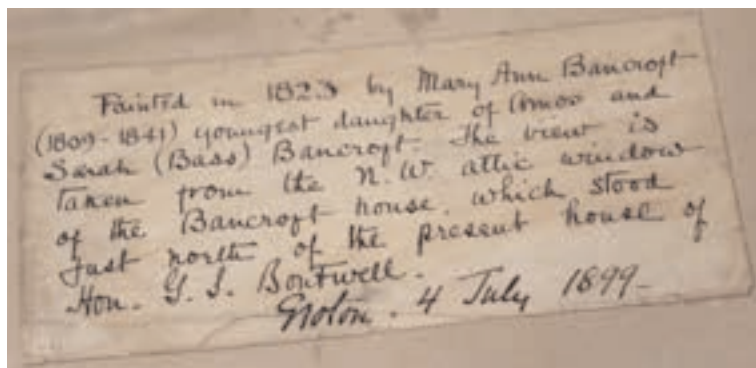 Painted in 1823 by Mary Ann Bancroft
(1809-1841) youngest daughter of Amos and
Sarah (Bass) Bancroft. The view is
taken from the N.W. attic window
of the Bancroft house, which stood
just north of the present house of
Hon. G. S. Boutwell.
Groton. 4 July 1899-